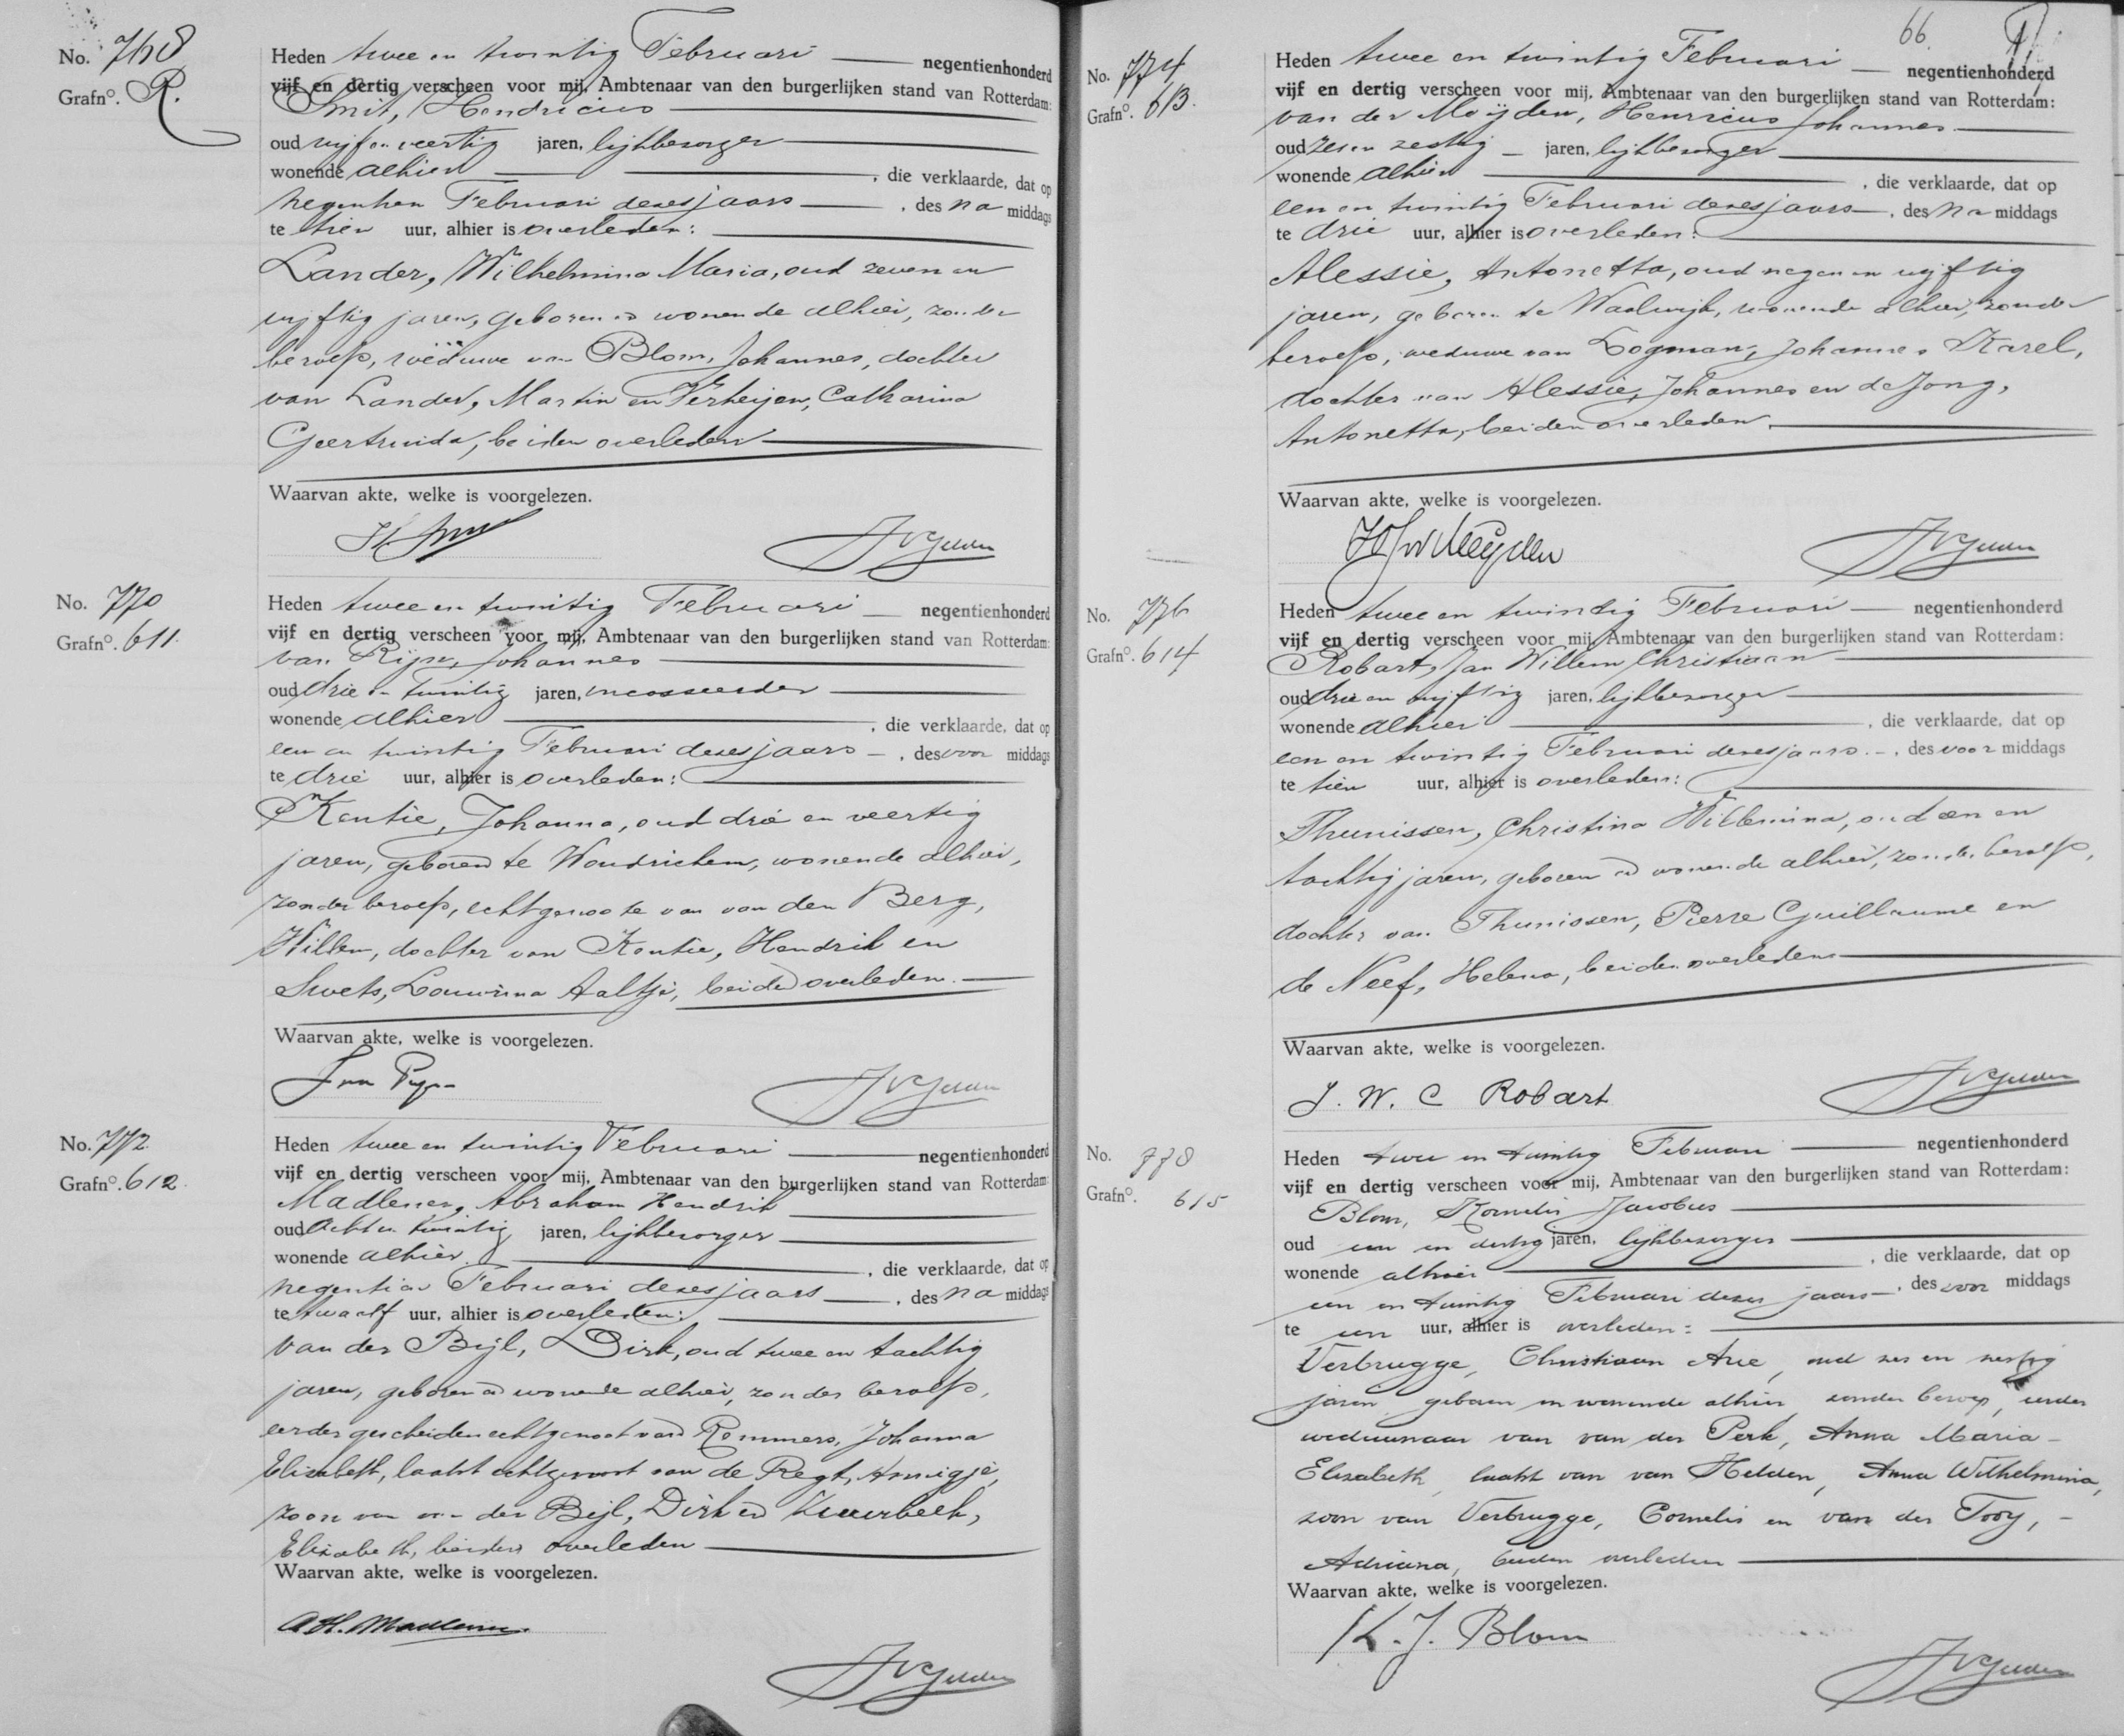 No. 768
Grafn°. R.
Heden twee en twintig Februari negentienhonderd
vijf en dertig verscheen voor mij, Ambtenaar van den burgerlijken stand van Rotterdam:
Smit, Hendricus
oud vijf en veertig jaren, lijkbezorger
wonende alhier , die verklaarde, dat op
negentien Februari dezes jaars , des na middags
te tien uur, alhier is overleden:
Lander, Wilhelmina Maria, oud zeven en
vijftig jaren, geboren en wonende alhier, zonder
beroep, weduwe van Blom, Johannes, dochter
van Lander, Martin en Verheijen, Catharina
Geertruida, beiden overleden
Waarvan akte, welke is voorgelezen.
H. Smit
No. 770
Grafn°. 611.
Heden twee en twintig Februari negentienhonderd
vijf en dertig verscheen voor mij, Ambtenaar van den burgerlijken stand van Rotterdam:
van Rijn, Johannes
oud drie en twintig jaren,
wonende alhier , die verklaarde, dat op
een en twintig Februari dezes jaars , des voor middags
te drie uur, alhier is overleden:
Kentie, Johanna, oud drie en veertig
jaren, geboren te Woudrichem, wonende alhier,
zonder beroep, echtgenoote van van den Berg,
Willem, dochter van Kentie, Hendrik en
Swets, Louwrina Aaltje, beiden overleden.
Waarvan akte, welke is voorgelezen.
No. 772
Grafn°. 612.
Heden twee en twintig Februari negentienhonderd
vijf en dertig verscheen voor mij, Ambtenaar van den burgerlijken stand van Rotterdam:
Madlener, Abraham Hendrik
oud acht en twintig jaren, lijkbezorger
wonende alhier , die verklaarde, dat op
negentien Februari dezes jaars , des na middags
te twaalf uur, alhier is overleden:
van der Bijl, Dirk, oud twee en tachtig
jaren, geboren en wonende alhier, zonder beroep,
eerder gescheiden echtgenoot van Rommers, Johanna
Elisabeth, laatst echtgenoot van de Regt, Annigje,
zoon van van der Bijl, Dirk en
Elizabeth, beiden overleden
Waarvan akte, welke is voorgelezen.
A. H. Madlener
66.
No. 774
Grafn°. 613.
Heden twee en twintig Februari negentienhonderd
vijf en dertig verscheen voor mij, Ambtenaar van den burgerlijken stand van Rotterdam:
van der Meijden, Henricus Johannes
oud zes en zestig jaren, lijkbezorger
wonende alhier , die verklaarde, dat op
een en twintig Februari dezes jaars , des na middags
te drie uur, alhier is overleden:
Alessie, Antonetta, oud negen en vijftig
jaren, geboren te Waalwijk, wonende alhier, zonder
beroep, weduwe van Logman, Johannes Karel,
dochter van Alessie, Johannes en de Jong,
Antonetta, beiden overleden.
Waarvan akte, welke is voorgelezen.
HJvdMeijden
No. 776
Grafn°. 614
Heden twee en twintig Februari negentienhonderd
vijf en dertig verscheen voor mij, Ambtenaar van den burgerlijken stand van Rotterdam:
Robart, Jan Willem Christiaan
oud drie en vijftig jaren, lijkbezorger
wonende alhier , die verklaarde, dat op
een en twintig Februari dezes jaars , des voor middags
te tien uur, alhier is overleden:
Thunissen, Christina Willemina, oud een en
tachtig jaren, geboren en wonende alhier, zonder beroep,
dochter van Thunissen, Pierre Guillaume en
de Neef, Helena, beiden overleden
Waarvan akte, welke is voorgelezen.
J. W. C Robart
No. 778
Grafn°. 615
Heden twee en twintig Februari negentienhonderd
vijf en dertig verscheen voor mij, Ambtenaar van den burgerlijken stand van Rotterdam:
Blom, Kornelis Jacobus
oud een en dertig jaren, lijkbezorger
wonende alhier , die verklaarde, dat op
een en twintig Februari dezes jaars , des voor middags
te een uur, alhier is overleden:
Verbrugge, Christiaan Arie, oud zes en zestig
jaren, geboren en wonende alhier, zonder beroep, eerder
weduwnaar van van der Perk, Anna Maria
Elizabeth, laatst van van Helden, Anna Wilhelmina,
zoon van Verbrugge, Cornelis en van der Tooy,
Adriana, beiden overleden
Waarvan akte, welke is voorgelezen.
K. J. Blom